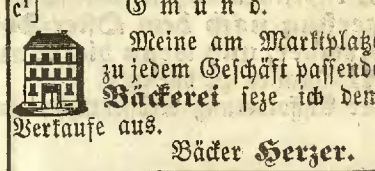 c¹] Gmünd.
Meine am Marktplatze
zu jedem Geschäft passende
Bäckerei seze ich dem
Verkaufe aus.
Bäcker Herzer.